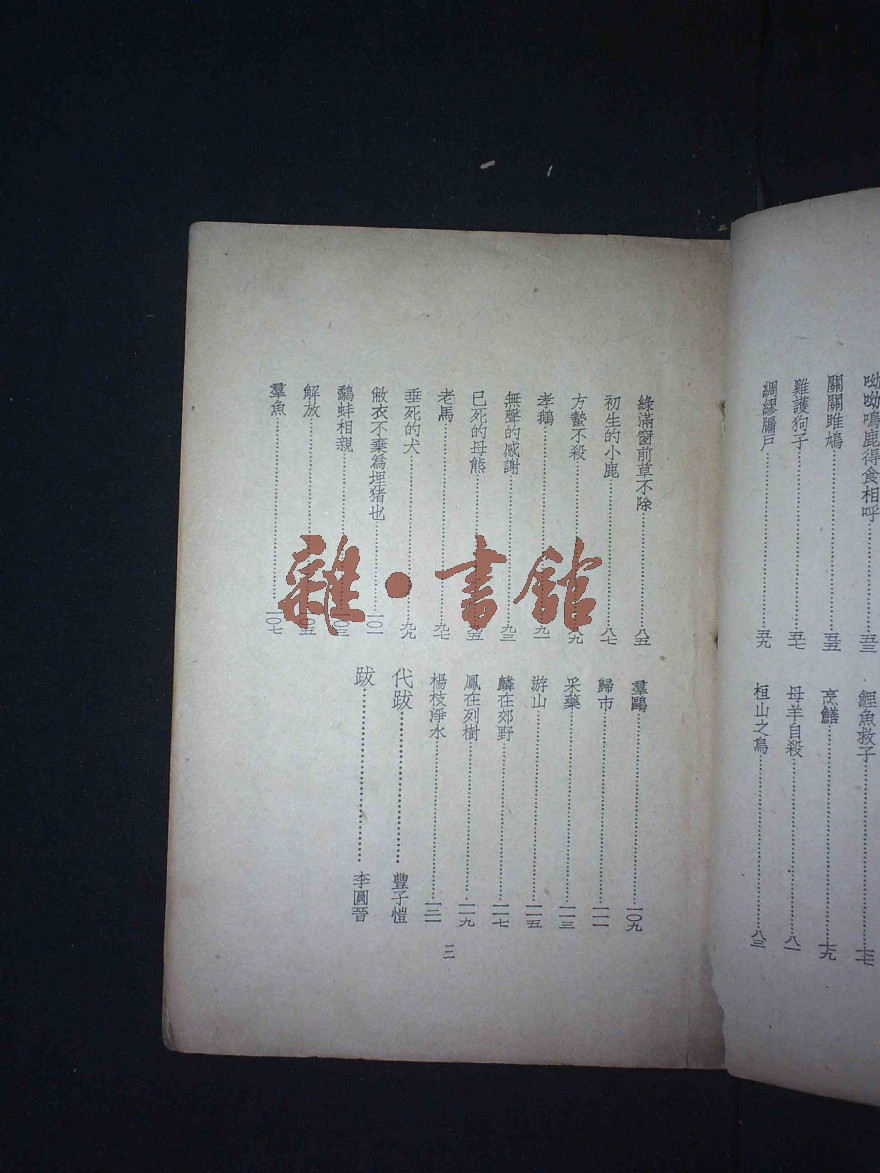 呦呦鳴鹿得食相呼……五三
關關雎鳩……五五
雞護狗子……五七
綢繆牖戶……五九
鯉魚救子……七七
烹鱔……七九
母羊自殺……八一
桓山之鳥……八三
綠滿窗前草不除……八五
初生的小鹿……八七
方蟄不殺……八九
孝鵝……九一
無聲的感謝……九三
已死的母熊……九五
老馬……九七
垂死的犬……九九
敝衣不棄爲埋猪也……一〇一
鷸蚌相親……一〇三
解放……一〇五
羣魚……一〇七
羣鷗……一〇九
歸市……一一一
采藥……一一三
游山……一一五
麟在郊野……一一七
鳳在列樹……一一九
楊枝淨水……一二一
代跋……豐子愷
跋……李圓晉
三
雜·書館